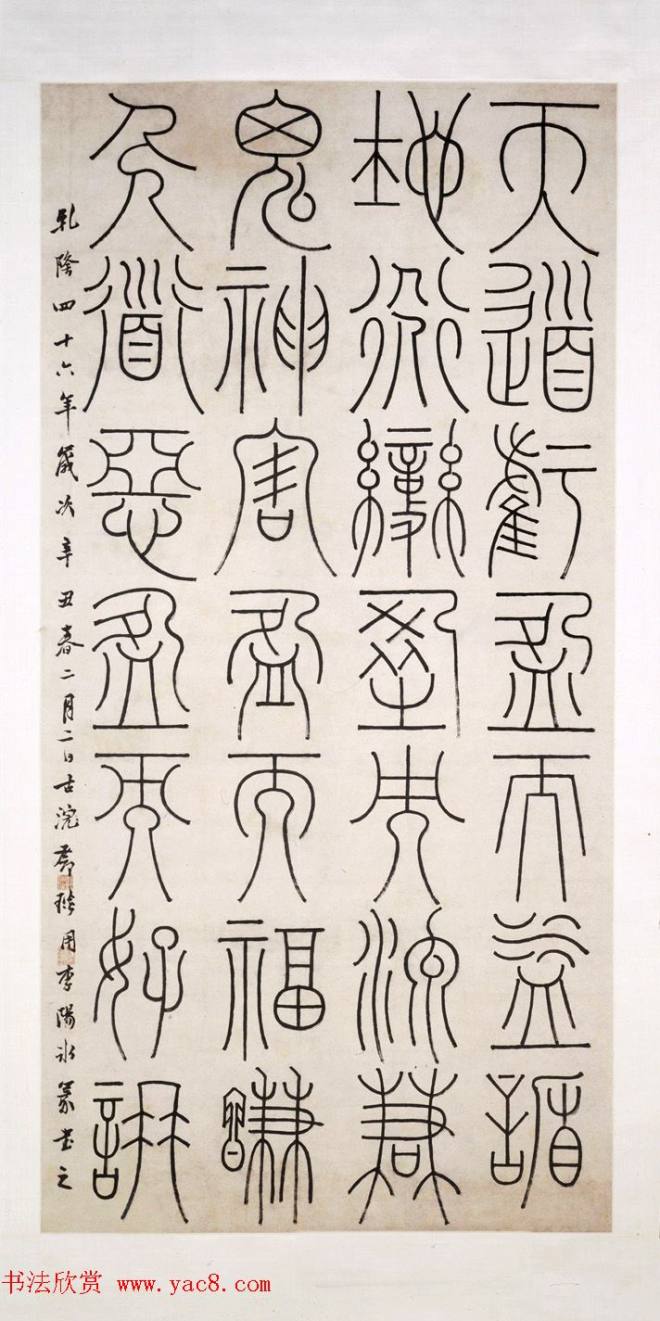 天道虧盈而益謙
地道變盈而流謙
鬼神害盈而福謙
人道惡盈而好謙
乾隆四十六年歲次辛丑春二月二日古浣鄧琰用李陽冰篆書之
书法欣赏 www.yac8.com